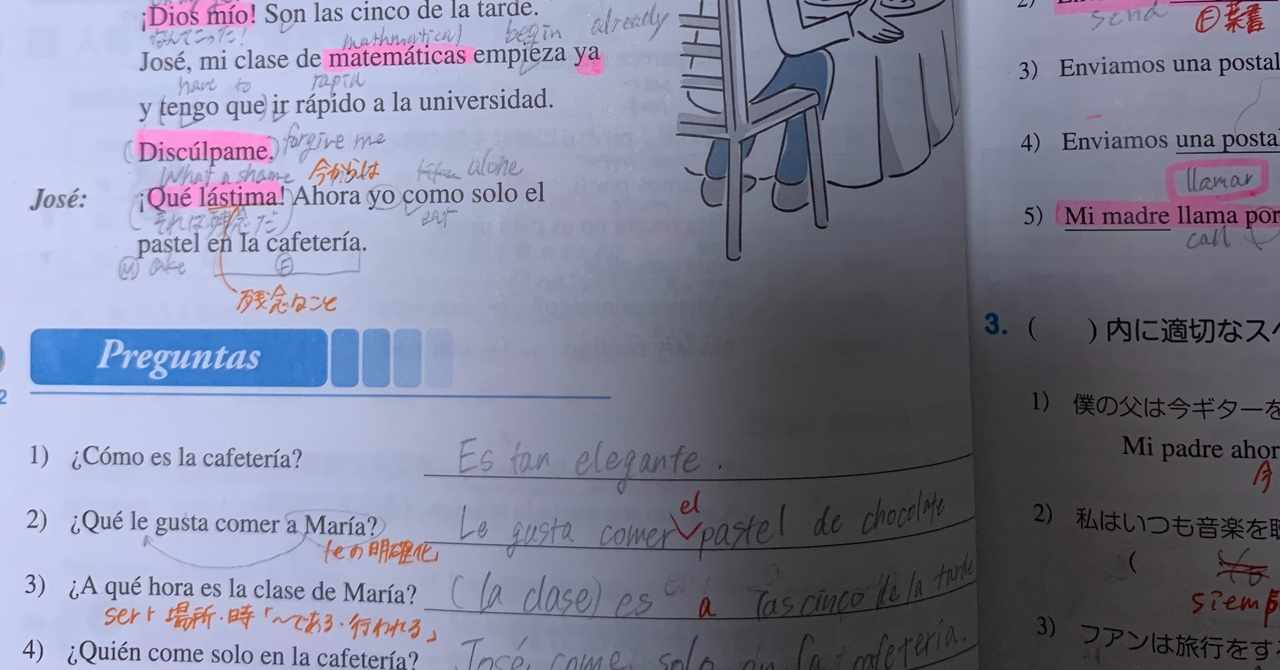 ¡Dios mío! Son las cinco de la tarde.
なんてこった!
mathmatical begin already
José, mi clase de matemáticas empieza ya
have to rapid
y tengo que ir rápido a la universidad.
Discúlpame. forgive me
What a shame 今からは alone
José: ¡Qué lástima! Ahora yo como solo el
それは残念だ eat
pastel en la cafetería.
Ⓜ cake Ⓕ
残念なこと
Preguntas
1) ¿Cómo es la cafetería? Es tan elegante.
el
2) ¿Qué le gusta comer a María? Le gusta comer pastel de chocolate
leの明確化
3) ¿A qué hora es la clase de María? (la clase) es a las cinco de la tarde
ser+場所・時「〜である・行われる」
4) ¿Quién come solo en la cafetería? José come solo en la cafetería.
send Ⓕ葉書
3) Enviamos una postal
4) Enviamos una posta
llamar
5) Mi madre llama por
call
3. ( )内に適切なス
1) 僕の父は今ギターを
Mi padre ahor
今
2) 私はいつも音楽を
(
siemp
3) フアンは旅行をす